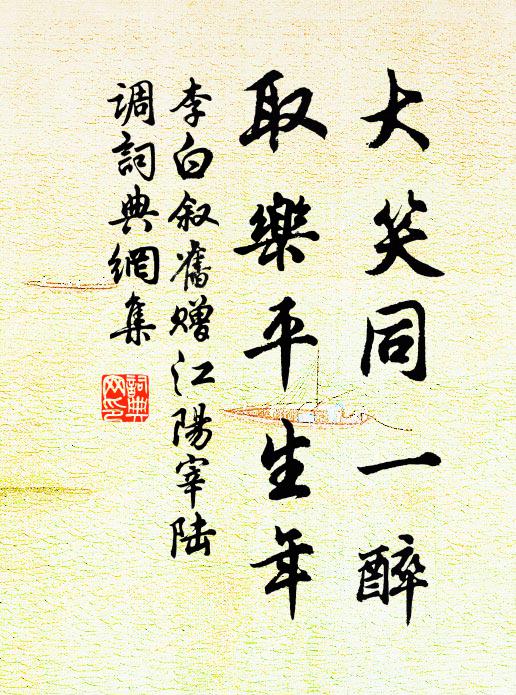 大笑同一醉
取樂平生年
李白叙舊贈江陽宰陆
调詞典網集
詞典
网印